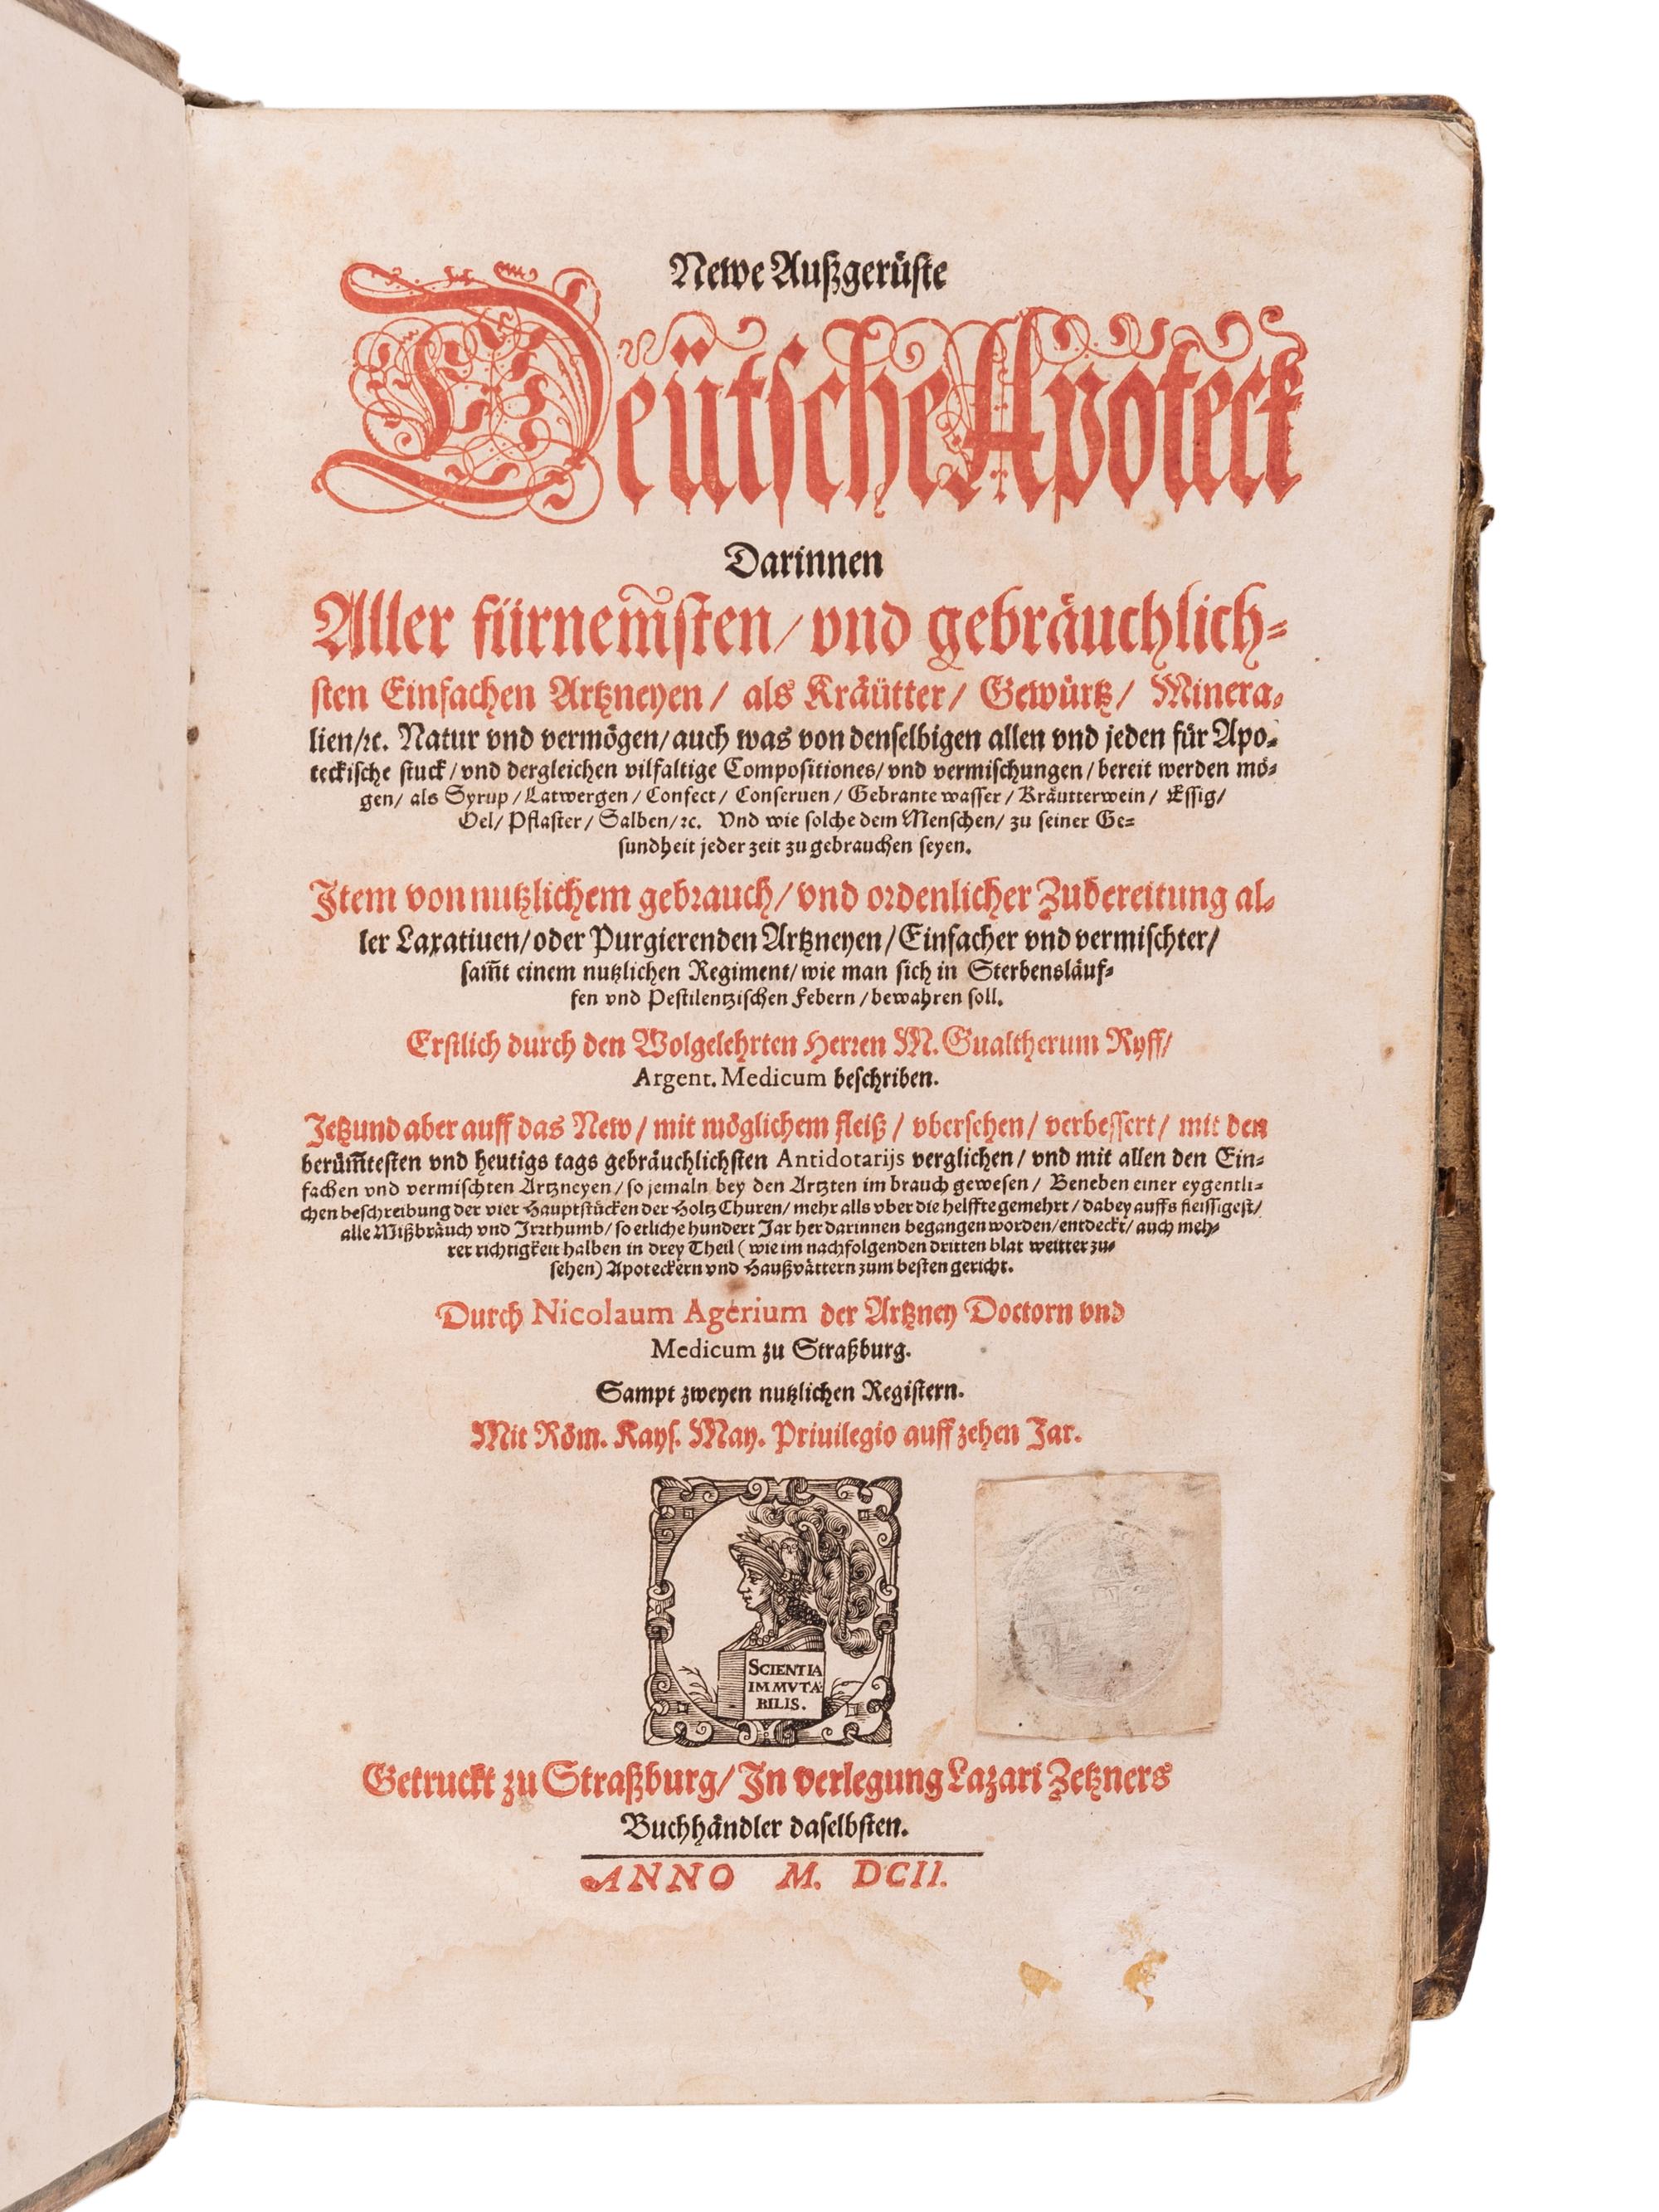 Newe Außgerüste
Deütsche Apoteck
Darinnen
Aller fürnem̃sten / vnd gebräuchlich⸗
sten Einfachen Artzneyen / als Kräütter / Gewürtz / Minera⸗
lien / ꝛc. Natur vnd vermögen / auch was von denselbigen allen vnd jeden für Apo⸗
teckische stuck / vnd dergleichen vilfaltige Compositiones / vnd vermischungen / bereit werden mö⸗
gen / als Syrup / Latwergen / Confect / Conseruen / Gebrante wasser / Kräutterwein / Essig /
Oel / Pflaster / Salben / ꝛc. Vnd wie solche dem Menschen / zu seiner Ge⸗
sundheit jeder zeit zu gebrauchen seyen.
Item von nutzlichem gebrauch / vnd ordenlicher Zubereitung al⸗
ler Laxatiuen / oder Purgierenden Artzneyen / Einfacher vnd vermischter /
sam̃t einem nutzlichen Regiment / wie man sich in Sterbensläuf⸗
fen vnd Pestilentzischen Febern / bewahren soll.
Erstlich durch den Wolgelehrten Herren M. Gualtherum Ryff /
Argent. Medicum beschriben.
Jetzund aber auff das New / mit möglichem fleiß / vbersehen / verbessert / mit den
berüm̃testen vnd heutigs tags gebräuchlichsten Antidotarijs verglichen / vnd mit allen den Ein⸗
fachen vnd vermischten Artzneyen / so jemaln bey den Artzten im brauch gewesen / Beneben einer eygentli⸗
chen beschreibung der vier Hauptstücken der Holtz Churen / mehr alls vber die helffte gemehrt / dabey auffs fleissigest /
alle Mißbräuch vnd Irrthumb / so etliche hundert Jar her darinnen begangen worden / entdeckt / auch meh⸗
rer richtigkeit halben in drey Theil ( wie im nachfolgenden dritten blat weitter zu⸗
sehen ) Apoteckern vnd Haußvättern zum besten gericht.
Durch Nicolaum Agerium der Artzney Doctorn vnd
Medicum zu Straßburg.
Sampt zweyen nutzlichen Registern.
Mit Röm. Kays. May. Priuilegio auff zehen Jar.
SCIENTIA
IMMVTA⸗
BILIS.
Getruckt zu Straßburg / In verlegung Lazari Zetzners
Buchhändler daselbsten.
ANNO M. DCII.